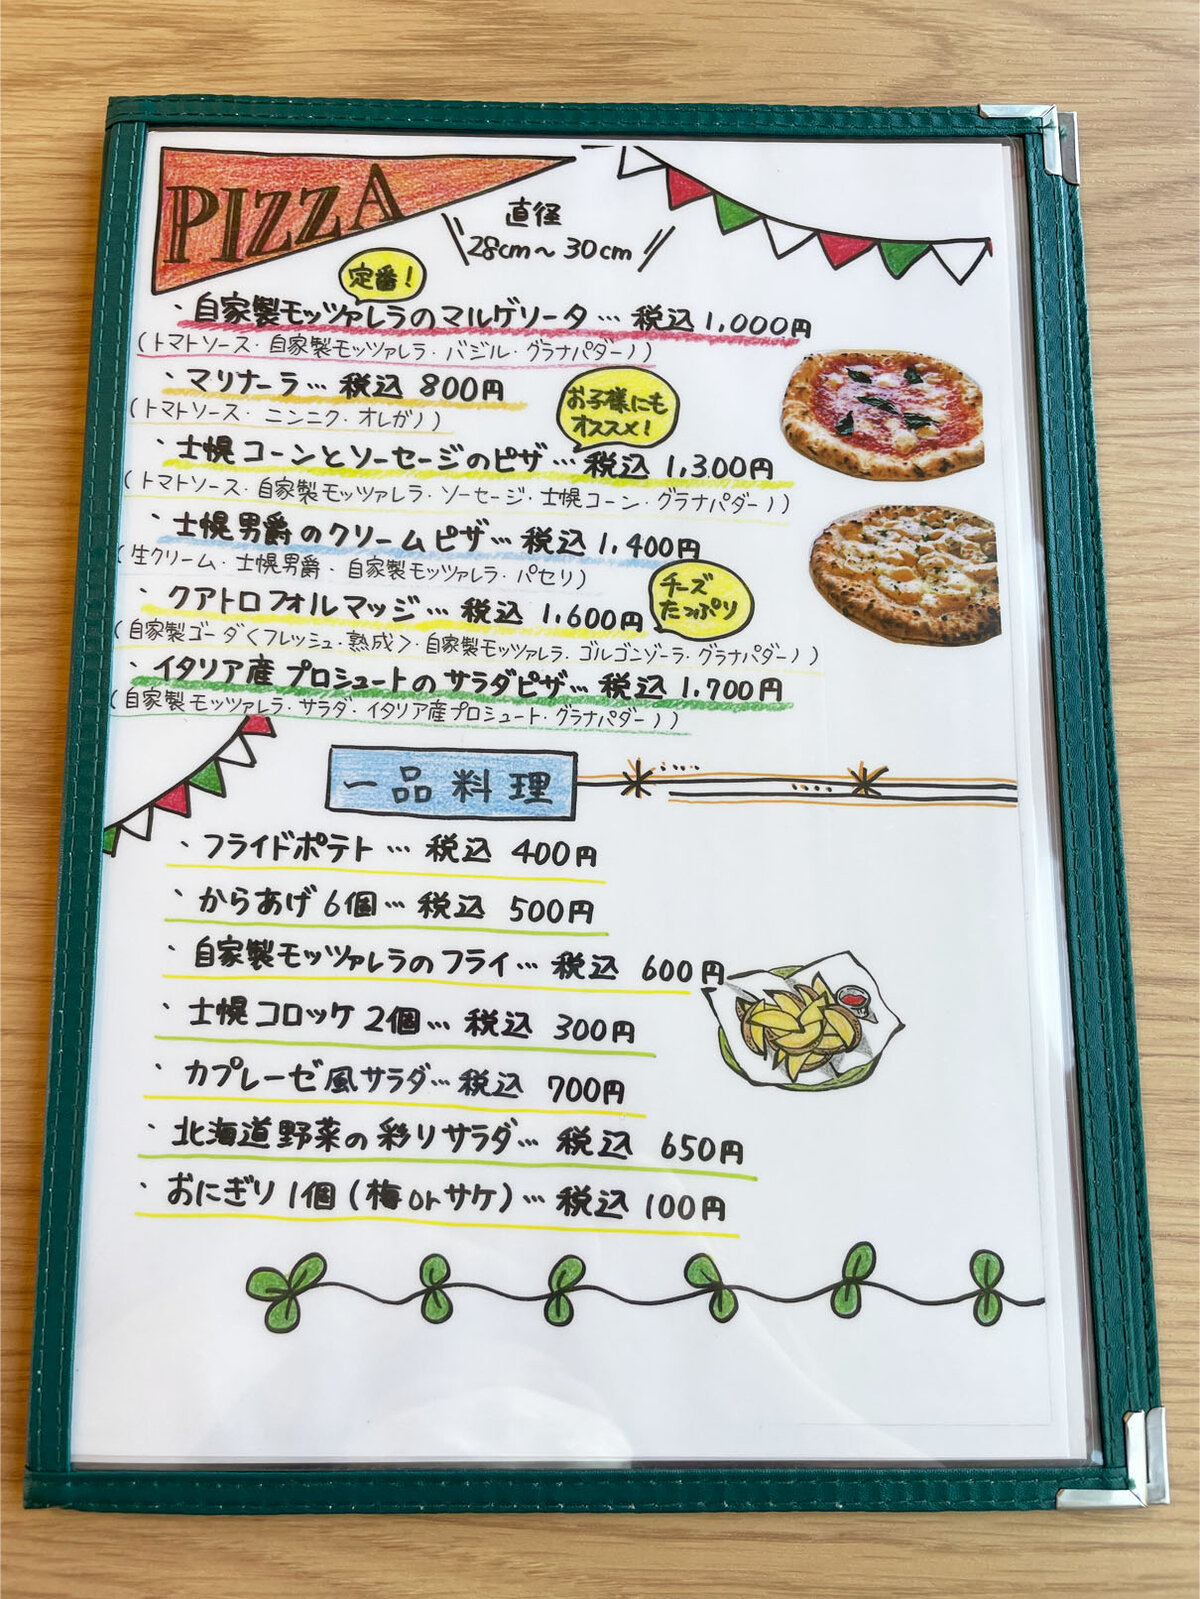 PIZZA
直径
28cm〜30cm
定番!
・自家製モッツァレラのマルゲリータ…税込1,000円
(トマトソース・自家製モッツァレラ・バジル・グラナパダーノ)
・マリナーラ…税込 800円
(トマトソース・ニンニク・オレガノ)
お子様にも
オススメ!
・士幌コーンとソーセージのピザ…税込1,300円
(トマトソース・自家製モッツァレラ・ソーセージ・士幌コーン・グラナパダーノ)
・士幌男爵のクリームピザ…税込1,400円
(生クリーム・士幌男爵・自家製モッツァレラ・パセリ)
チーズ
たっぷり
・クアトロフォルマッジ…税込 1,600円
(自家製ゴーダ<フレッシュ・熟成>・自家製モッツァレラ・ゴルゴンゾーラ・グラナパダーノ)
・イタリア産プロシュートのサラダピザ…税込1,700円
(自家製モッツァレラ・サラダ・イタリア産プロシュート・グラナパダーノ)
一品料理
・フライドポテト…税込 400円
・からあげ6個…税込 500円
・自家製モッツァレラのフライ…税込 600円
・士幌コロッケ2個…税込 300円
・カプレーゼ風サラダ…税込 700円
・北海道野菜の彩りサラダ…税込 650円
・おにぎり1個(梅orサケ)…税込100円